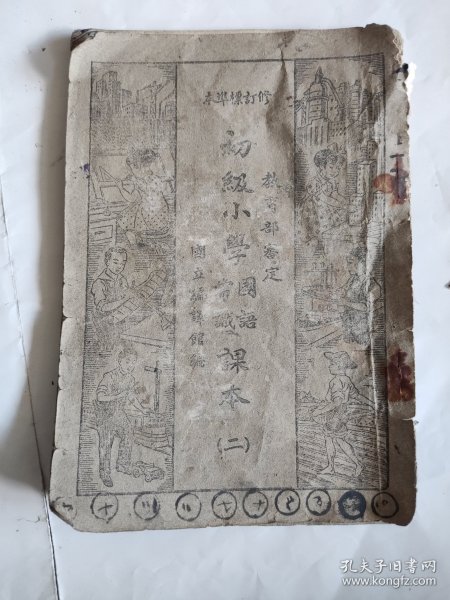 修訂標準本
教育部審定
初級小學國語常識課本
(二)
國立編譯館編
孔夫子旧书网
www.kongfz.com